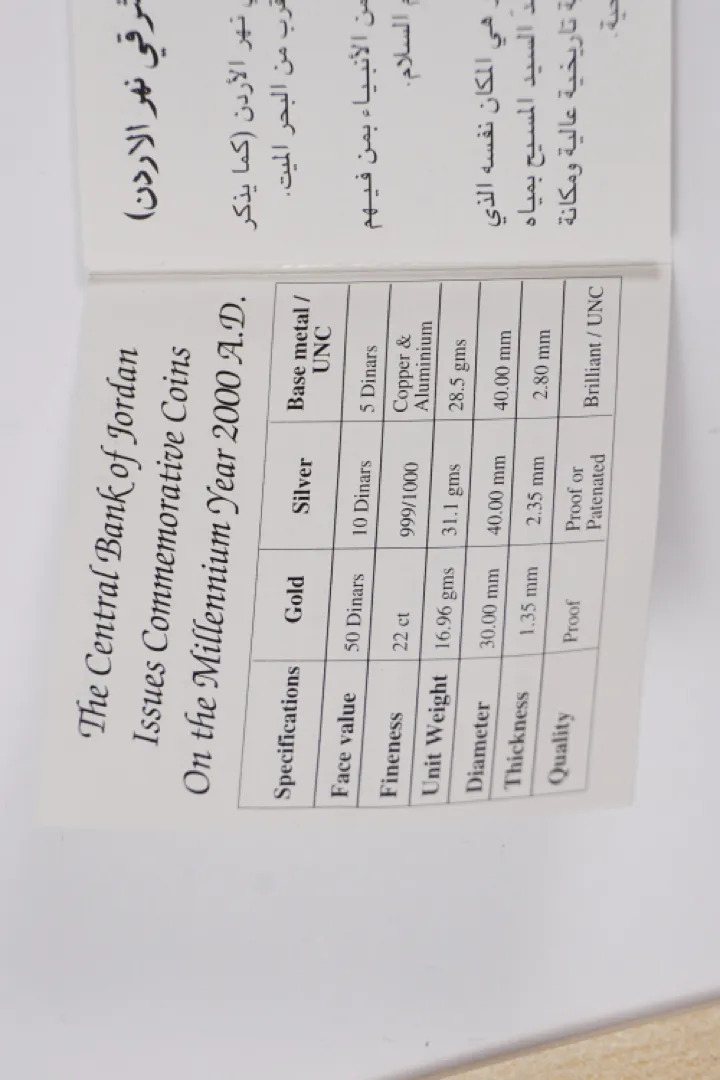 The Central Bank of Jordan
Issues Commemorative Coins
On the Millennium Year 2000 A.D.
Specifications Gold Silver Base metal / UNC
Face value 50 Dinars 10 Dinars 5 Dinars
Fineness 22 ct 999/1000 Copper & Aluminium
Unit Weight 16.96 gms 31.1 gms 28.5 gms
Diameter 30.00 mm 40.00 mm 40.00 mm
Thickness 1.35 mm 2.35 mm 2.80 mm
Quality Proof Proof or Patenated Brilliant / UNC
نهر الاردن)
نهر الأردن (كما يذكر
من البحر الميت.
من الأنبياء بمن فيهم
السلام.
هي المكان نفسه الذي
السيد المسيح بمياه
تاريخية عالية ومكانة